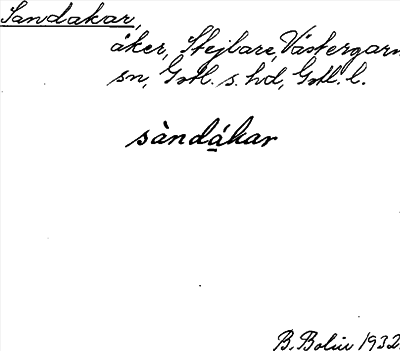 Sandakar,
åker, Stejlare, Västergarn
sn, Gotl. s. hd, Gotl. l.
sàndákar
B. Bolin 1932.